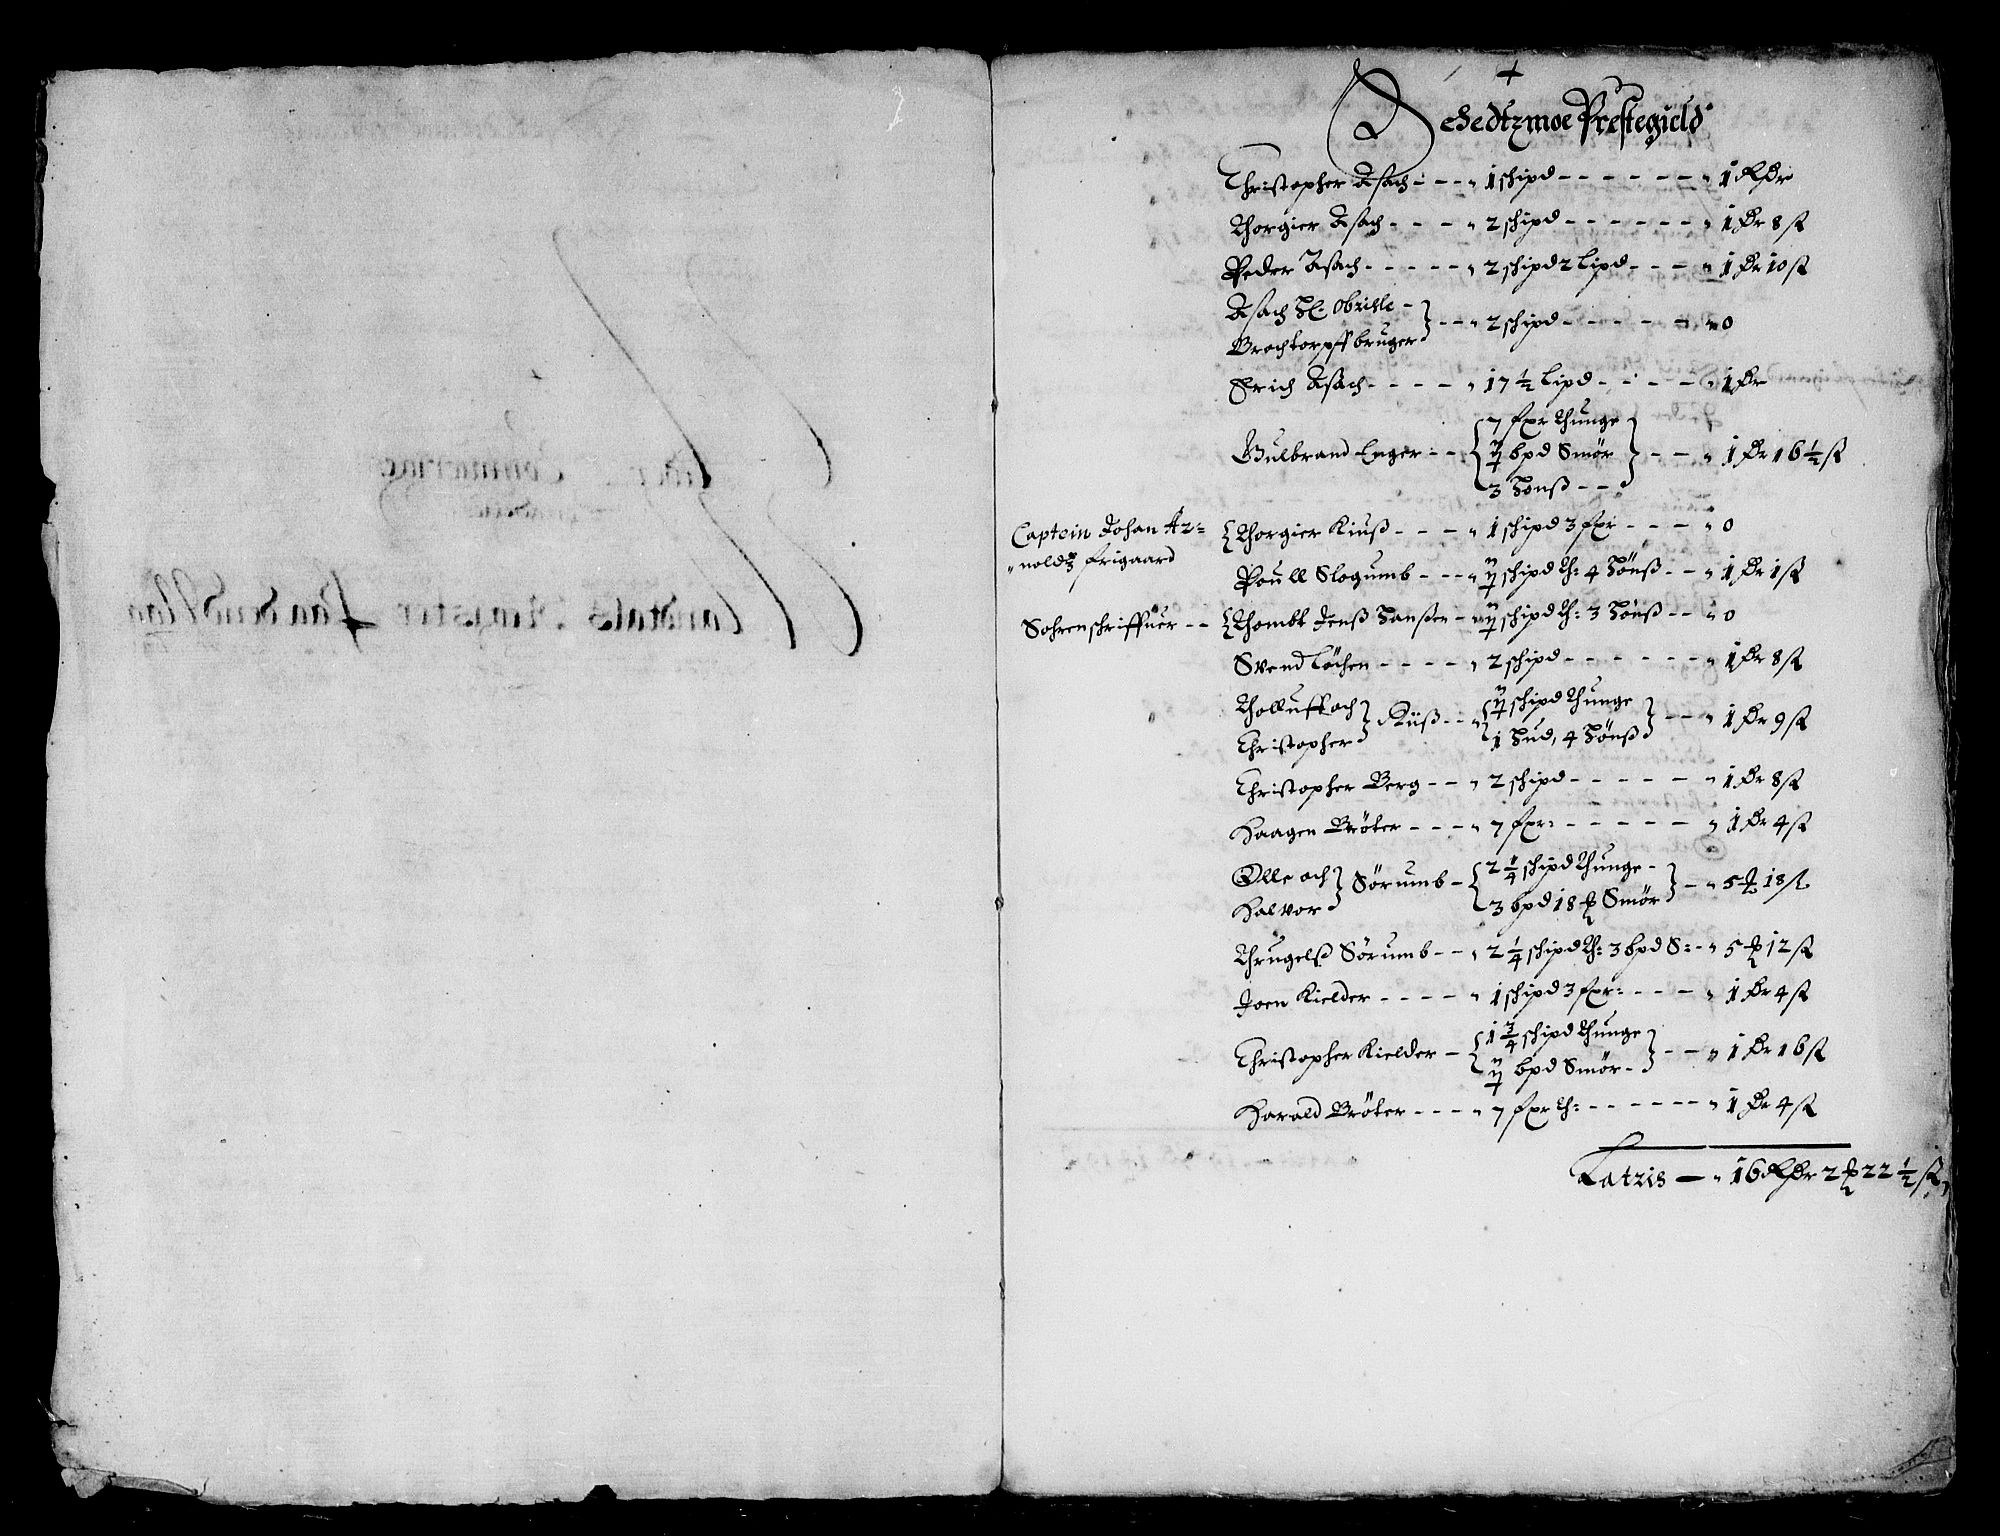 Gedtzmoe Prestegield
Christopher Asach - - - 1 schipd - - - - - - 1 Rdr
Thorgier Asach - - - - 2 schipd - - - - - - 1 Dr 8 ß
Peder Asach - - - - - 2 schipd 2 lipd - - - 1 Dr 10 ß
Asach Obriste -
Brochtorpff bruger } - - 2 schipd - - - - - 0
Erich Asach - - - - 17 ½ lipd - - - - - 1 Dr
Gulbrand Enger - - { 7 fxr thunge
½ bpd Smör } - - 1 Dr 16 ½ ß
3 Hönß - -
Captein Johan Ar=
noldz frigaard
{ Thorgier Kiuß - - - - 1 schipd 3 fxr - - - - 0
Poull Slogumb - - - ½ schipd th: 4 Hönß - - 1 Dr 1 ß
Sohrenschriffuer - - { Thombt Jenß Hanßen - ½ schipd th: 3 Hönß - - 0
Svend Löchen - - - - 2 schipd - - - - - - 1 Dr 8 ß
Tholluff och
Christopher } Kiuß - - { ½ schipd thunge
1 Hud, 4 Hönß } - - 1 Dr 9 ß
Christopher Berg - - 2 schipd - - - - - - 1 Dr 8 ß
Haagen Bröter - - - - 7 fxr: - - - - - - 1 Dr 4 ß
Olle och
Halvor } Sörumb - { 2 ¼ schipd thunge -
3 bpd 18 ℔ Smör } - 5 ꝶ 18 ß
Thrugelß Sörumb - - 2 ¼ schipd th: 3 bpd S: - 5 ꝶ 12 ß
Joen Kielder - - - - 1 schipd 3 fxr: - - - 1 Dr 4 ß
Christopher Kielder - { 1 ¾ schipd thunge
½ bpd Smör - } - - 1 Dr 16 ß
Harald Bröter - - - - 7 fxr th: - - - - - - 1 Dr 4 ß
Latzis — 16 Rdr 2 ꝶ 22 ½ ß